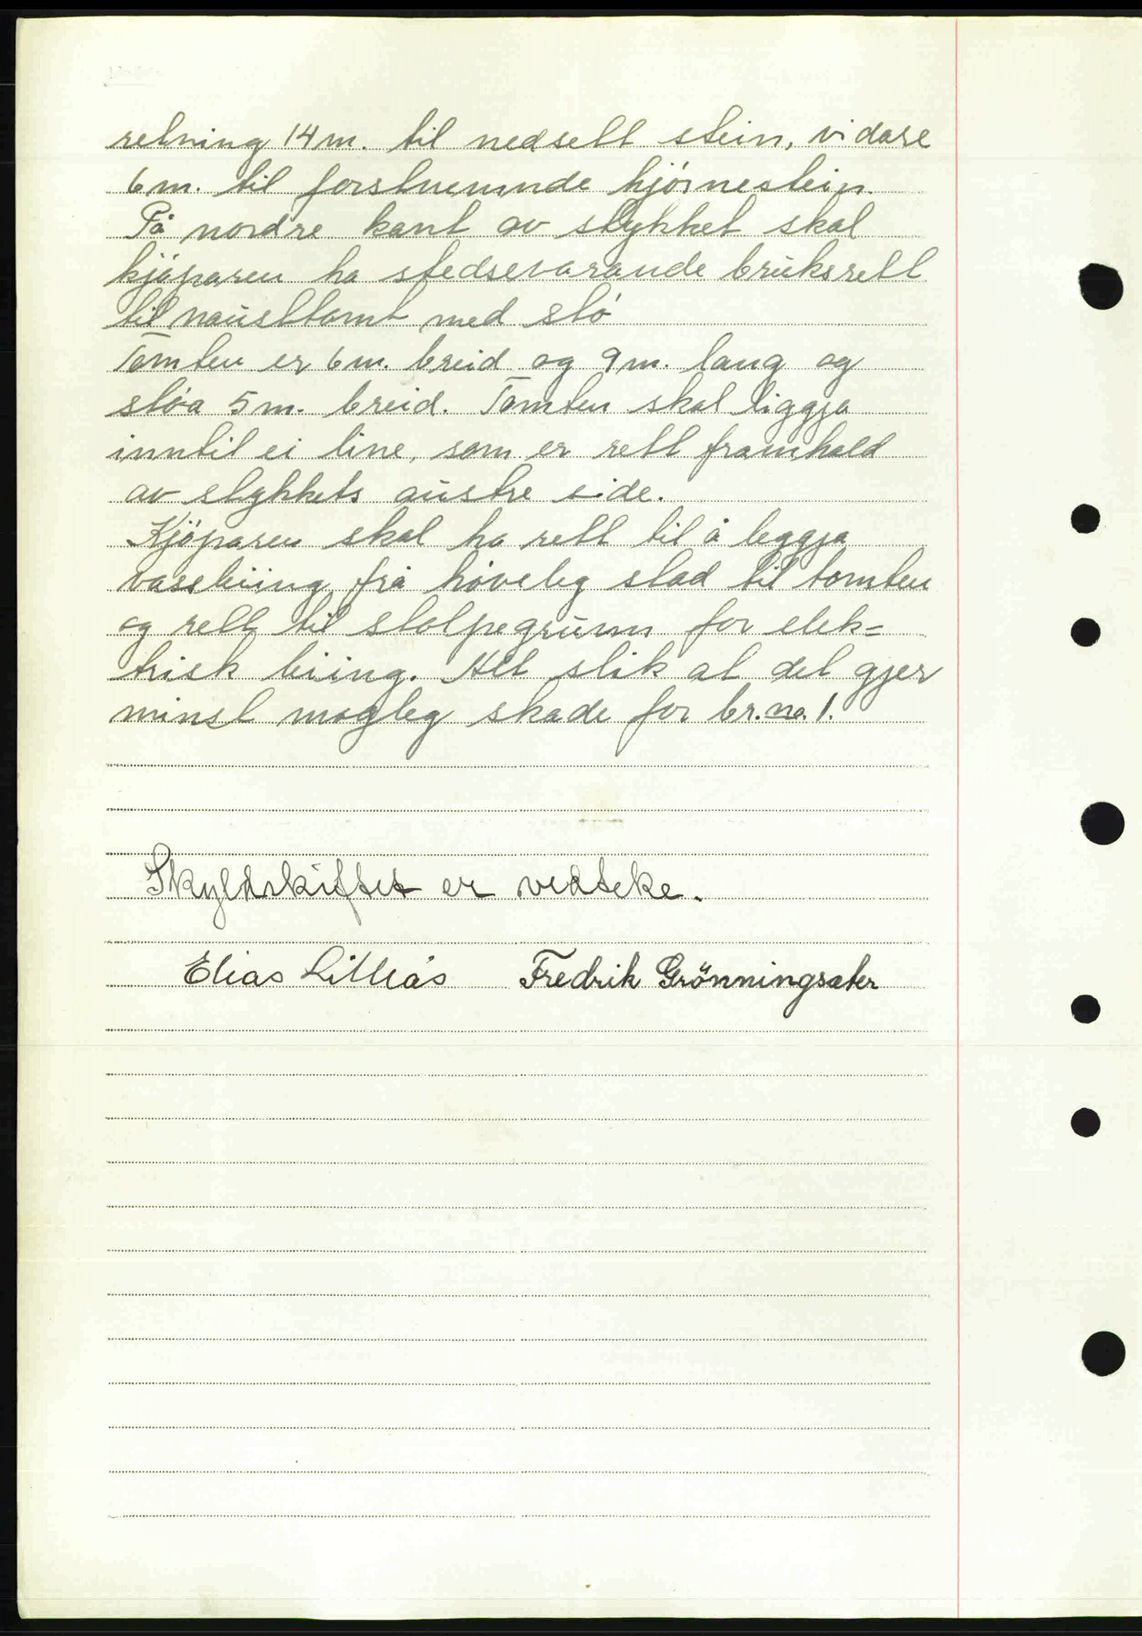 retning 14 m. til nedsett stein, vidare
6 m. til forstnemnde hjörnestein.
På nordre kant av stykket skal
kjöparen ha stedsevarande bruksrett
til nausttomt med stö
Tomten er 6 m. breid og 9 m. lang og
stöa 5 m. breid. Tomten skal liggja
inntil ei line, som er rett framhald
av stykkets austre side.
Kjöparen skal ha rett til å leggja
vassleiing frå höveleg stad til tomten
og rett til stolpegrunn for elek=
trisk leiing. Alt slik at det gjer
minst mogleg skade for br. no. 1.
Skyldskiftet er vedteke.
Elias Lilleås Fredrik Grönningsæter